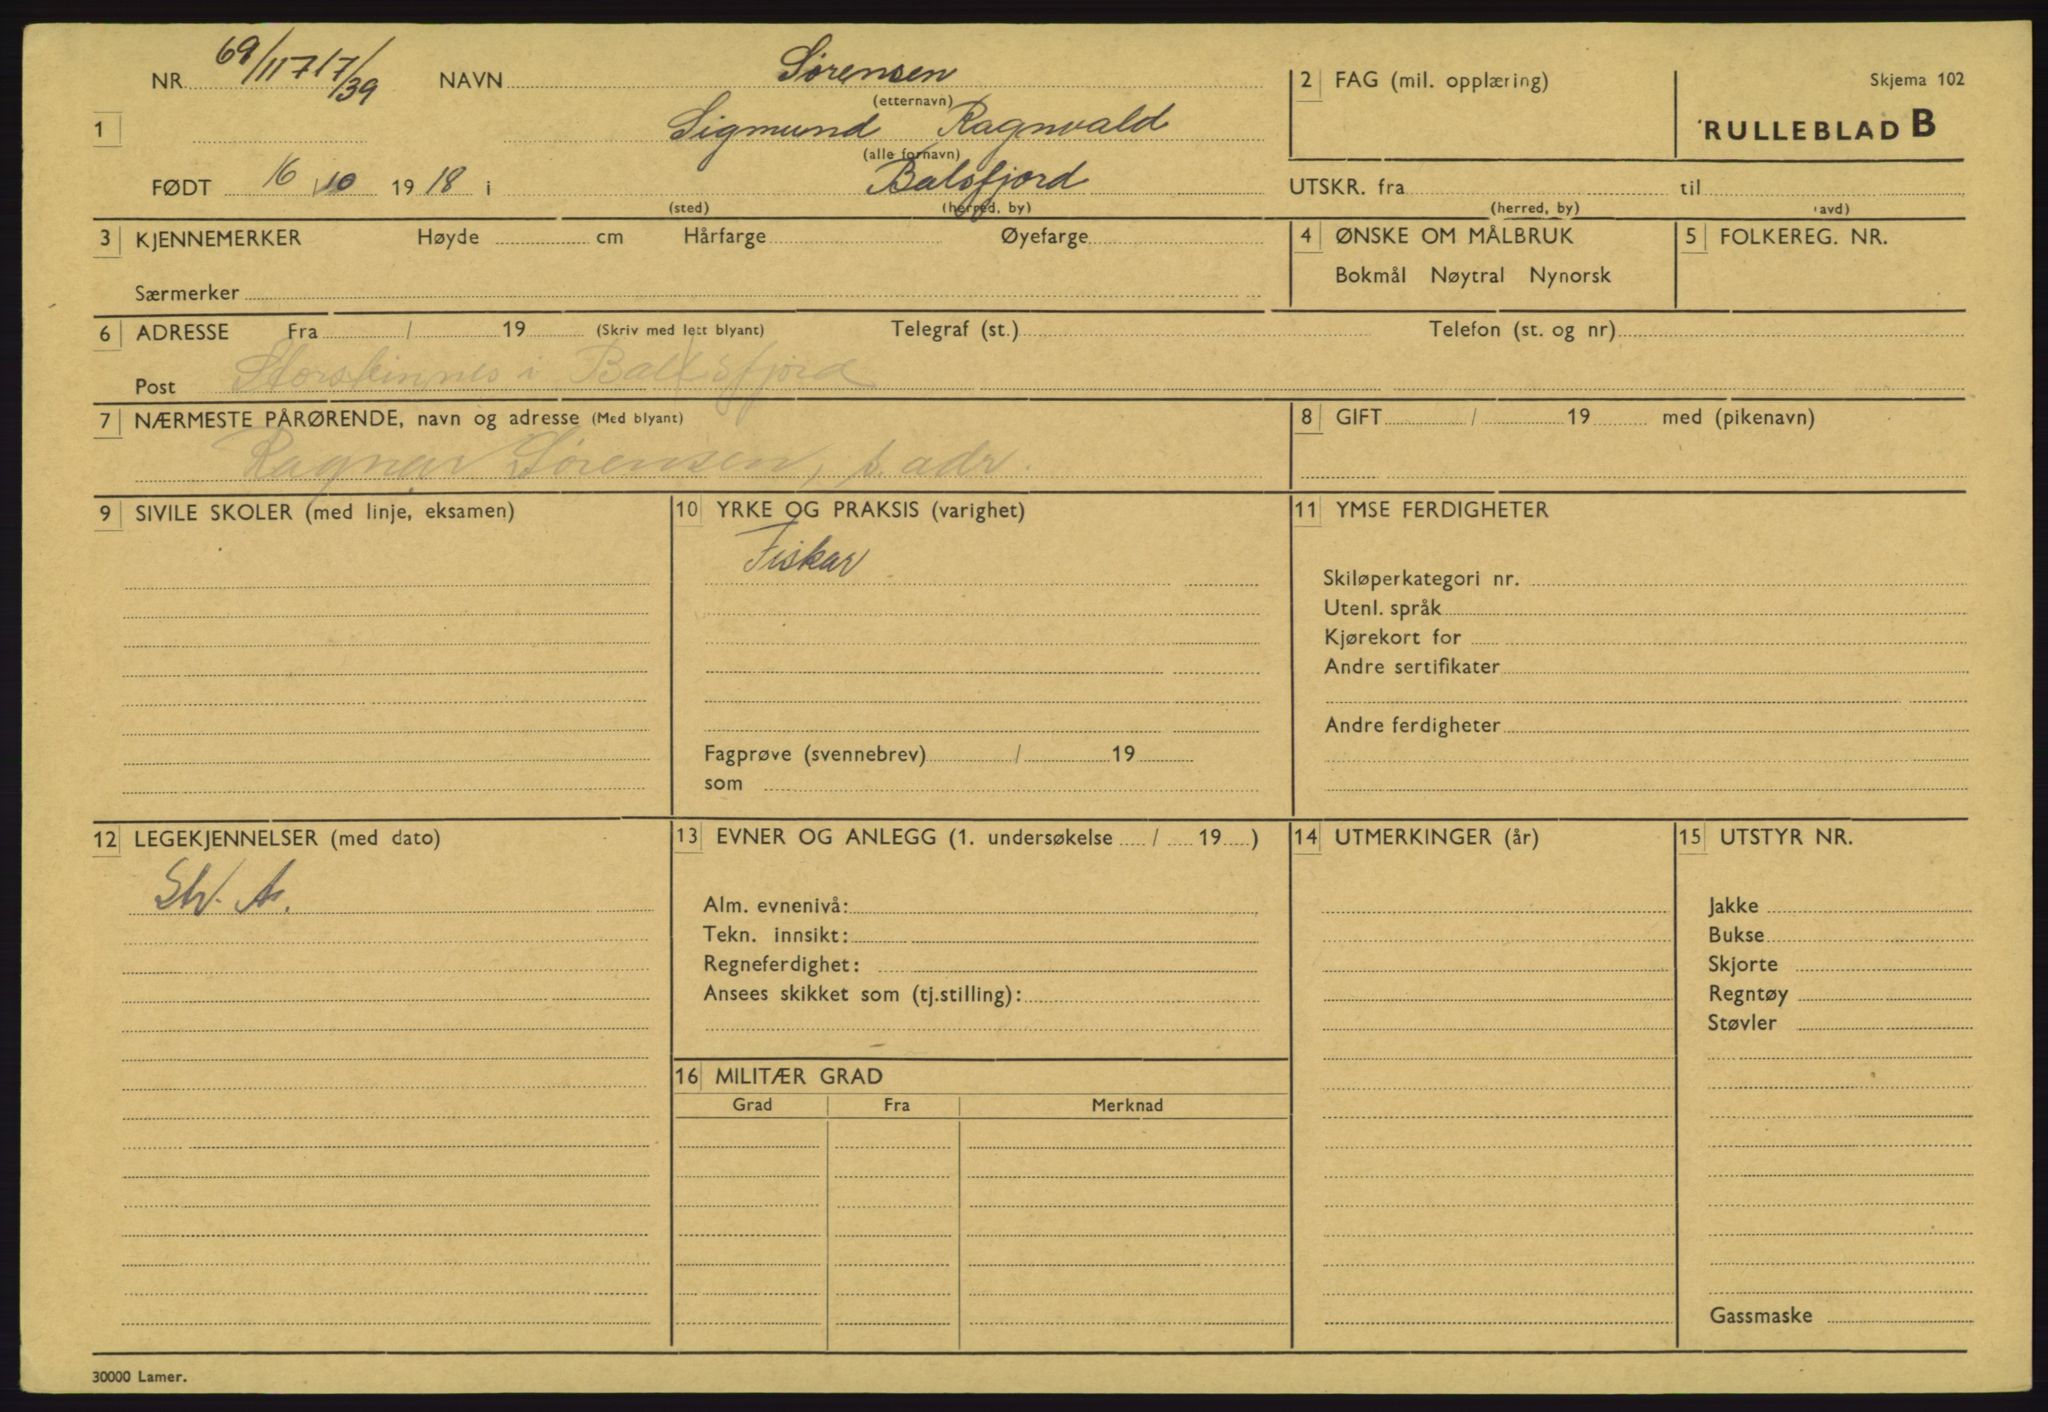 NR. 69/11717/39 NAVN Sørensen
(etternavn)
2 FAG (mil. opplæring)
Skjema 102
RULLEBLAD B
1 Sigmund Ragnvald
(alle fornavn)
FØDT 16 10 1918 i Balsfjord
(sted) (herred, by)
UTSKR. fra til
(herred, by) (avd)
3 KJENNEMERKER Høyde cm Hårfarge Øyefarge
Særmerker
4 ØNSKE OM MÅLBRUK
Bokmål Nøytral Nynorsk
5 FOLKEREG. NR.
6 ADRESSE Fra / 19 (Skriv med lett blyant) Telegraf (st.) Telefon (st. og nr)
Post Storsteinnes i Balsfjord
7 NÆRMESTE PÅRØRENDE, navn og adresse (Med blyant)
Ragnar Sørensen, s. adr.
8 GIFT / 19 med (pikenavn)
9 SIVILE SKOLER (med linje, eksamen)
10 YRKE OG PRAKSIS (varighet)
Fiskar
Fagprøve (svennebrev) / 19
som
11 YMSE FERDIGHETER
Skiløperkategori nr.
Utenl. språk
Kjørekort for
Andre sertifikater
Andre ferdigheter
12 LEGEKJENNELSER (med dato)
13 EVNER OG ANLEGG (1. undersøkelse / 19 )
Alm. evnenivå:
Tekn. innsikt:
Regneferdighet:
Ansees skikket som (tj.stilling):
14 UTMERKINGER (år)
15 UTSTYR NR.
Jakke
Bukse
Skjorte
Regntøy
Støvler
Gassmaske
16 MILITÆR GRAD
Grad Fra Merknad
30000 Lamer.